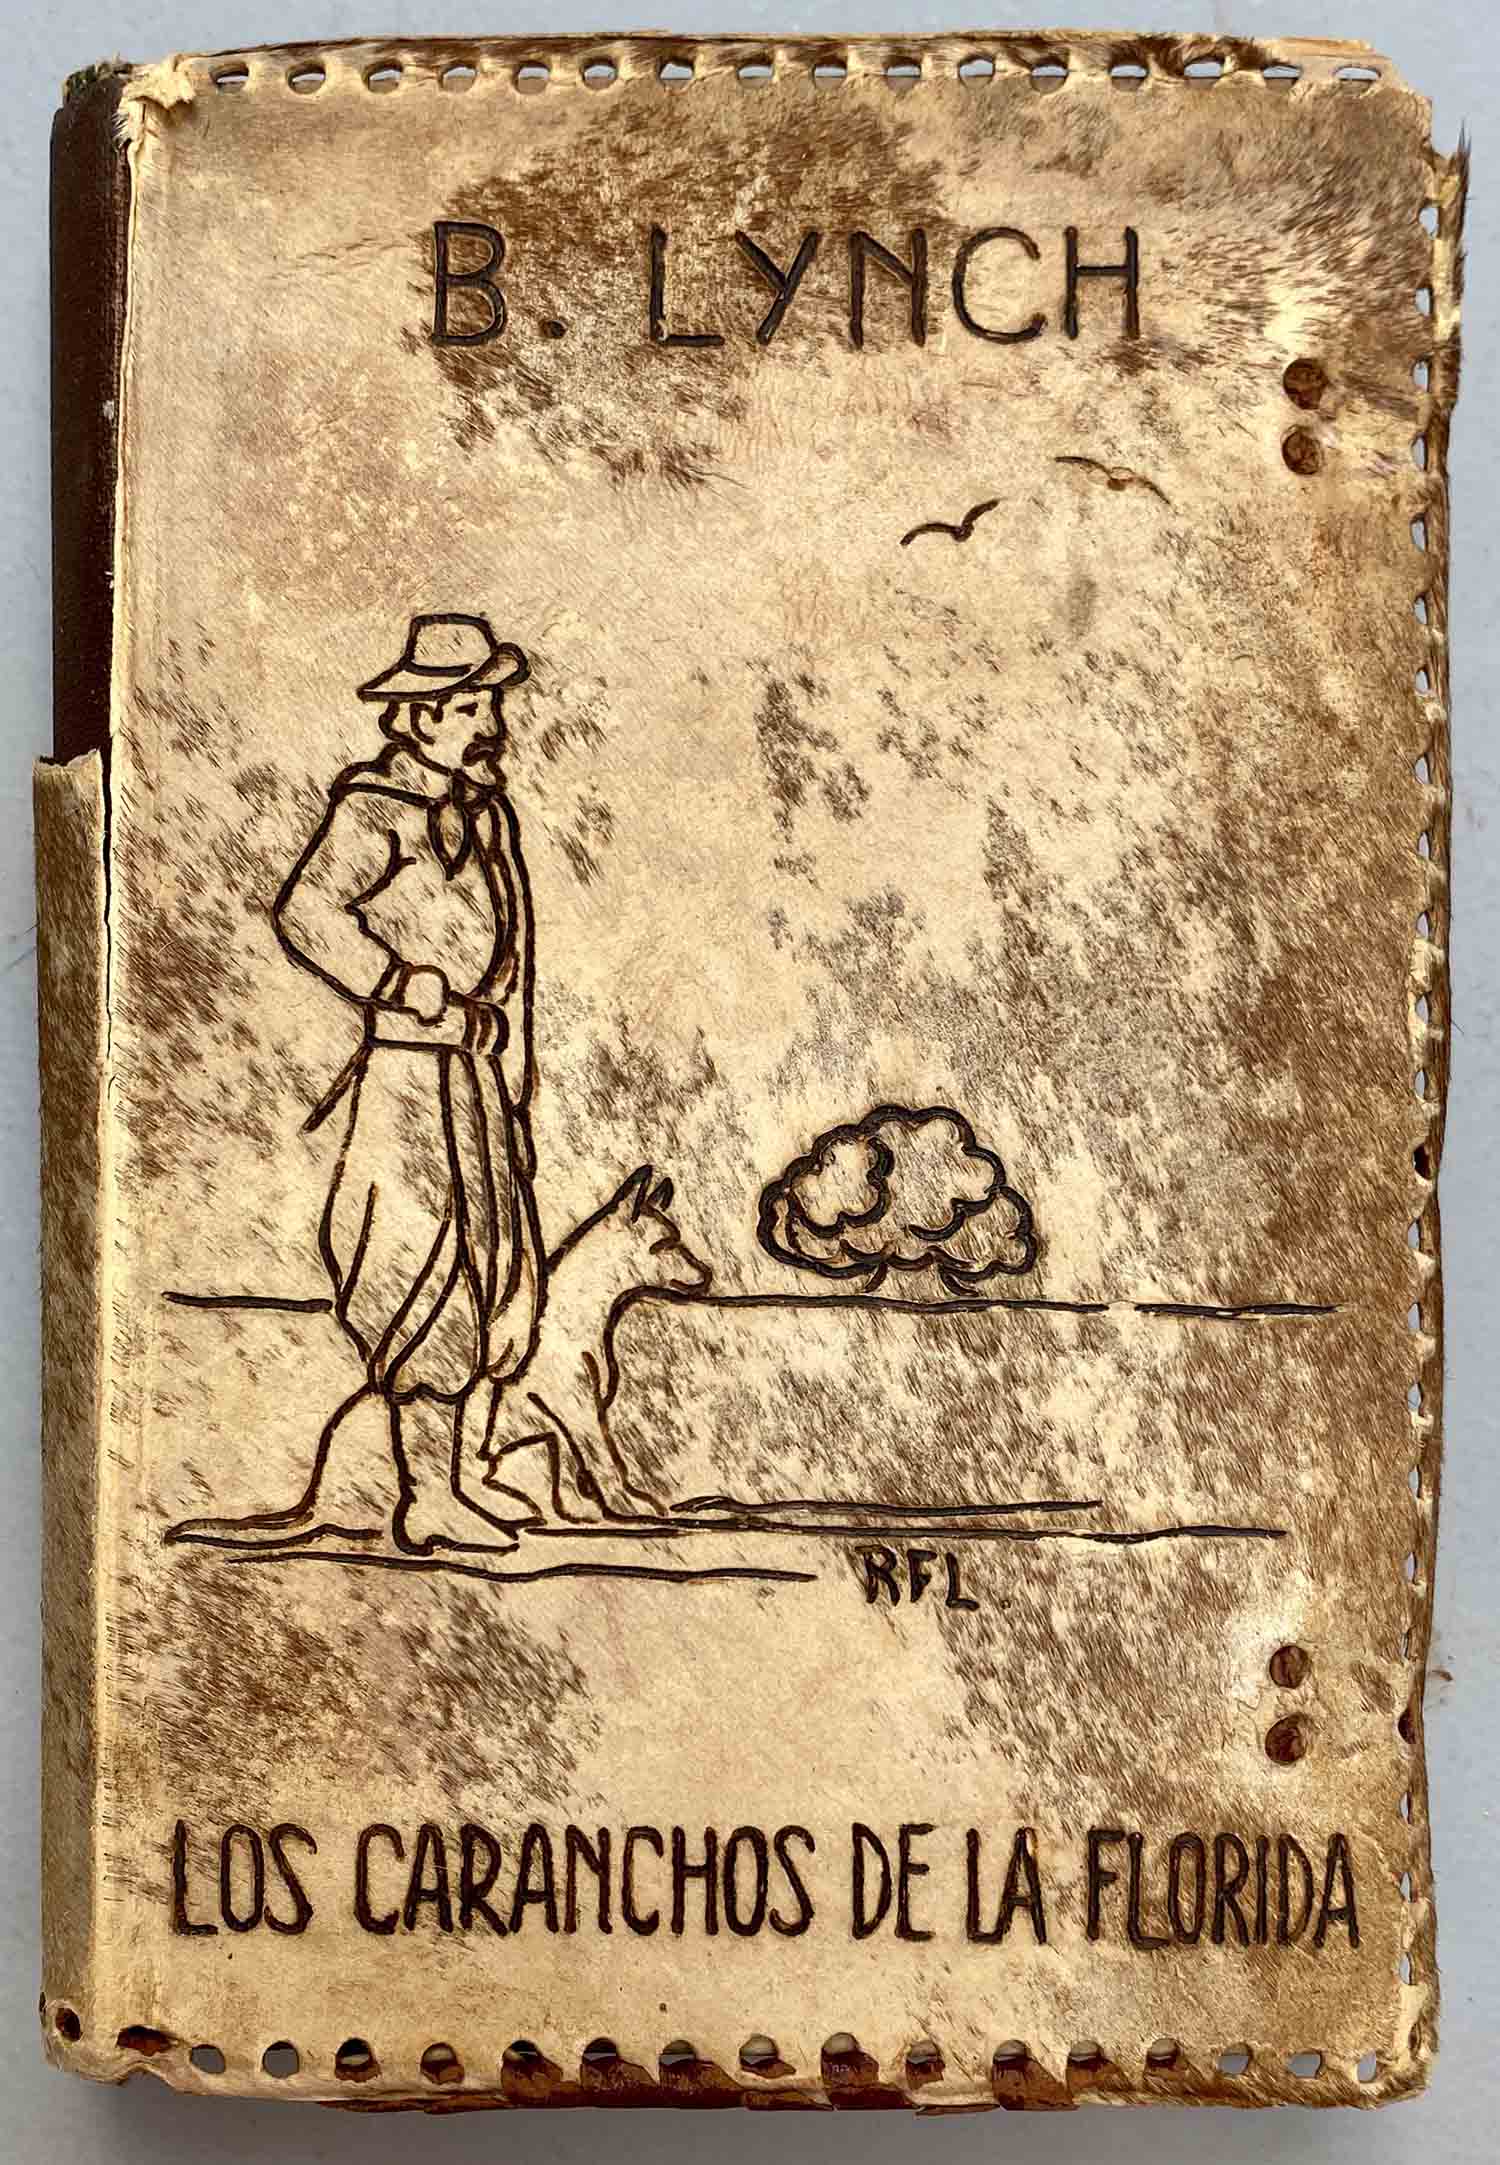 B. LYNCH
RFL.
LOS CARANCHOS DE LA FLORIDA